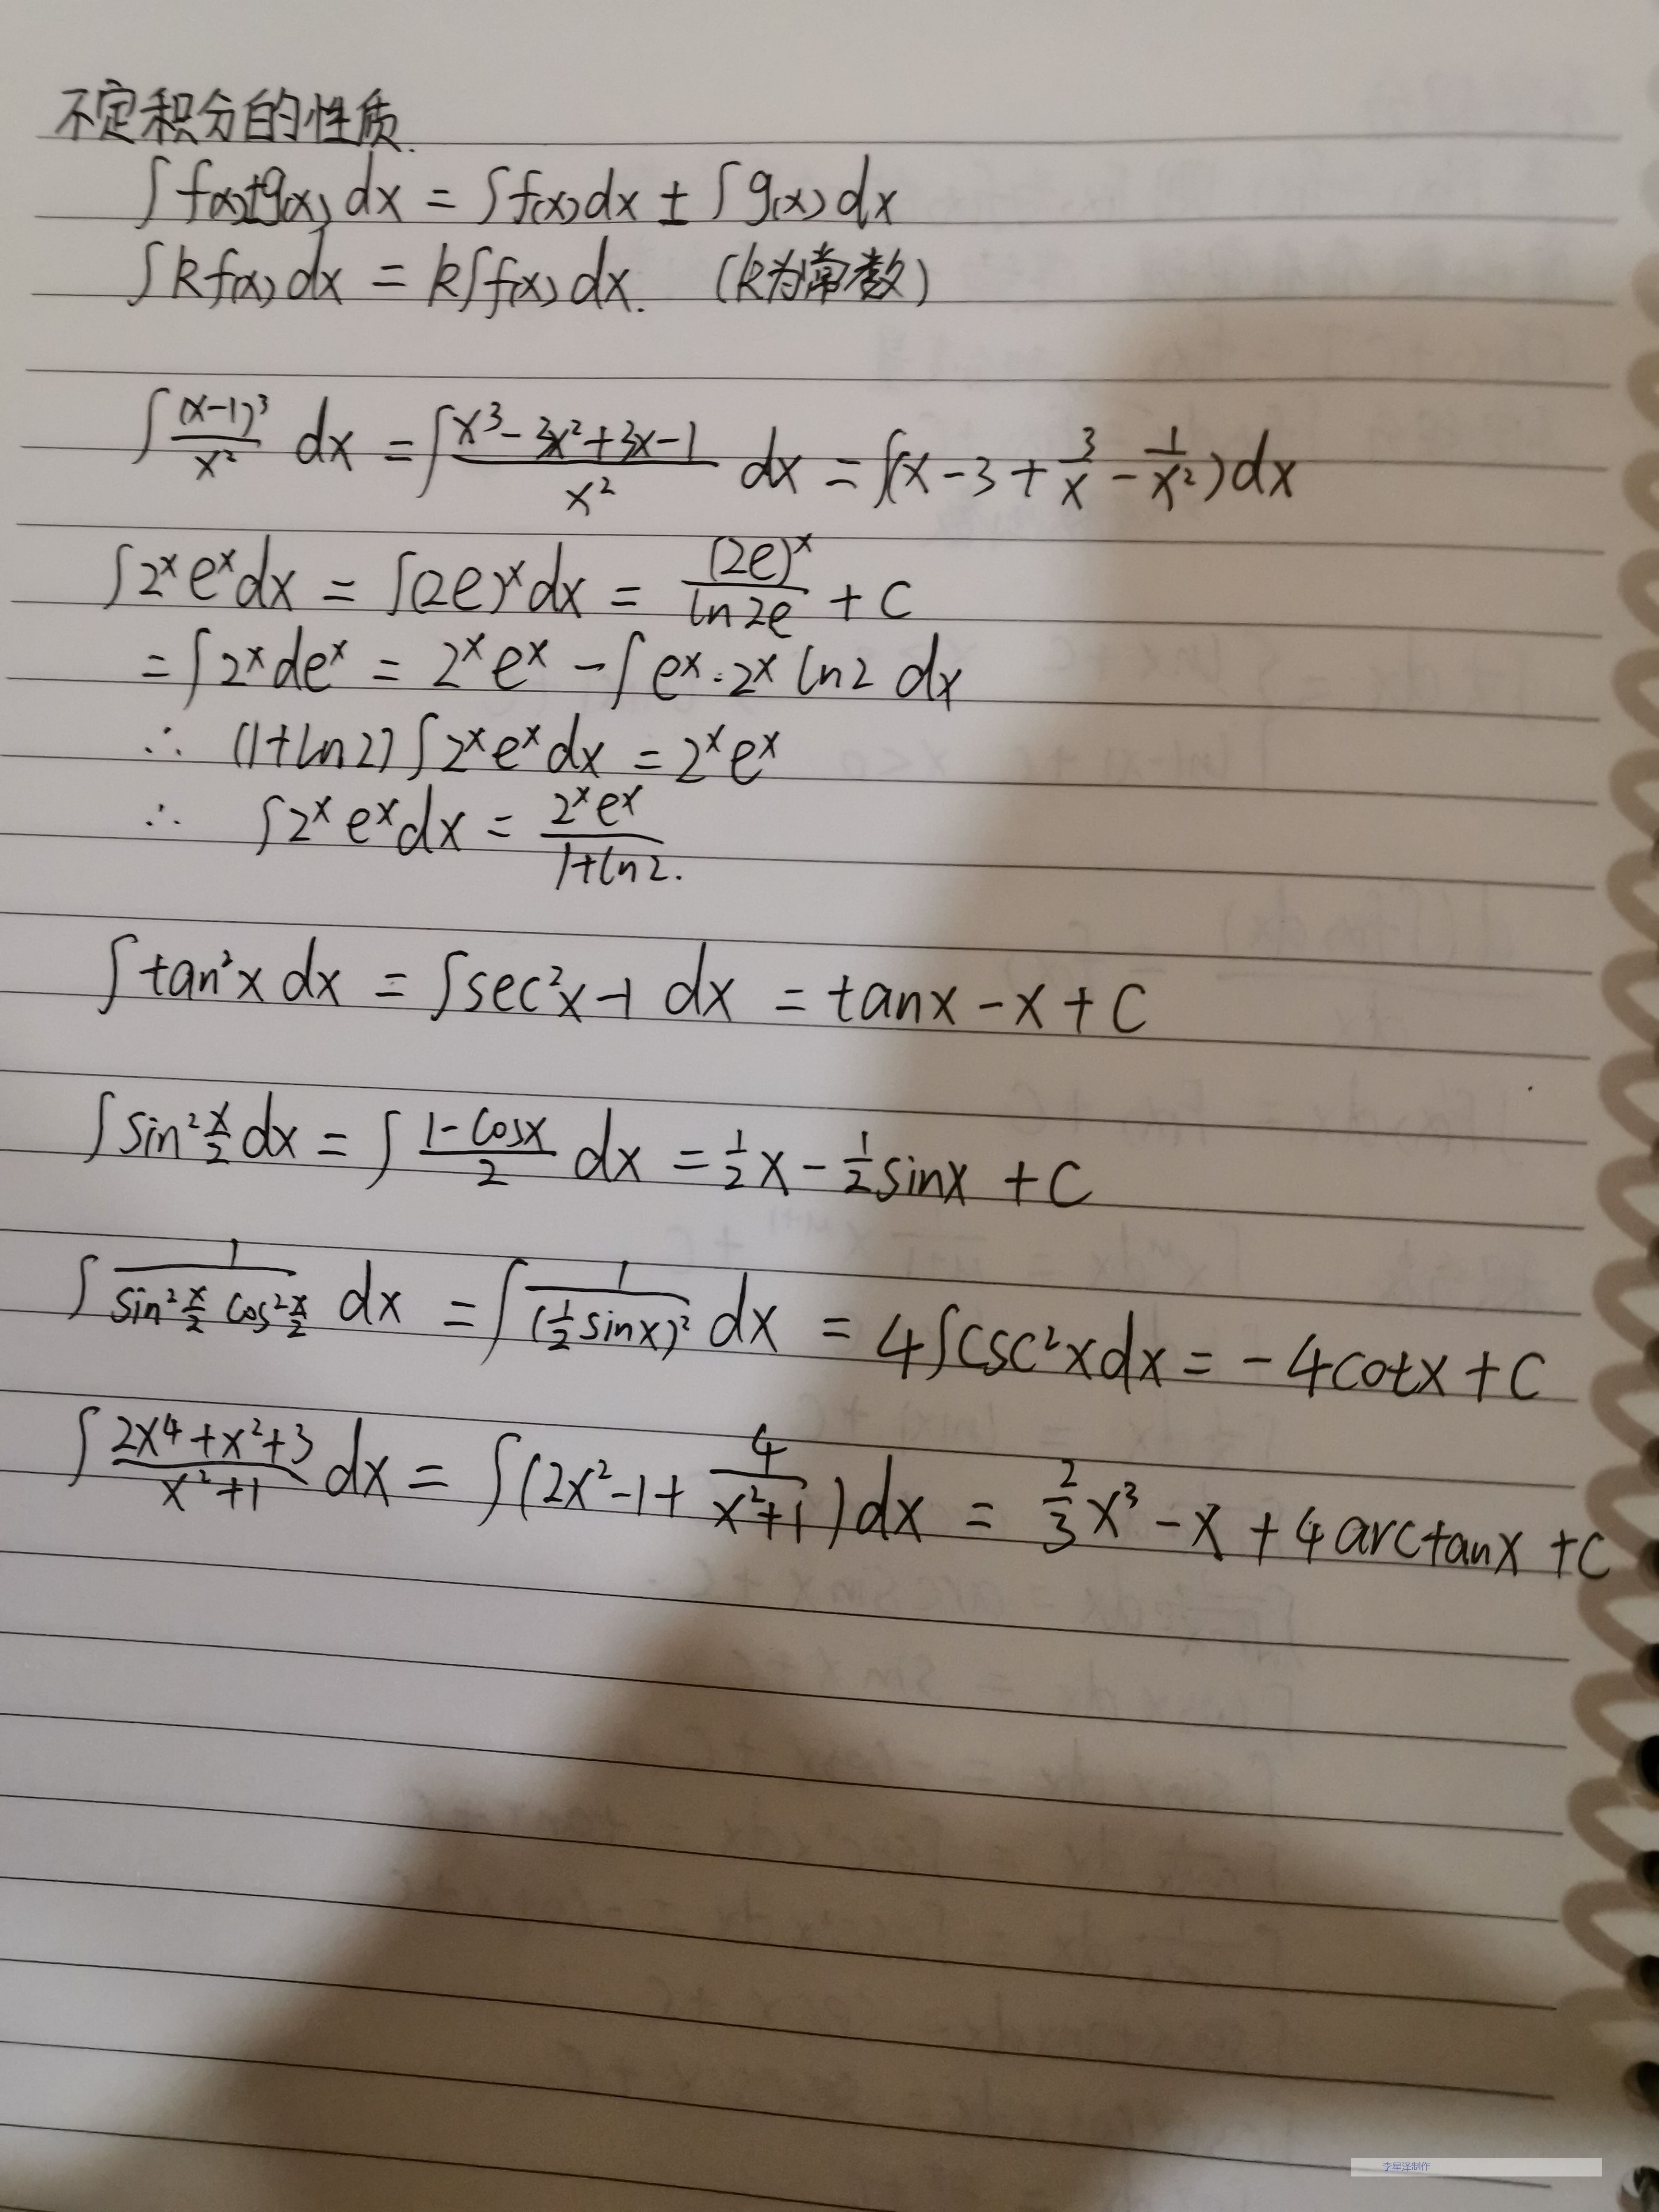 不定积分的性质.
∫f(x)±g(x) dx = ∫f(x)dx ± ∫g(x)dx
∫kf(x)dx = k∫f(x)dx. (k为常数)
∫(x-1)³/x² dx = ∫(x³-3x²+3x-1)/x² dx = ∫(x-3+3/x-1/x²)dx
∫2ˣeˣdx = ∫(2e)ˣdx = (2e)ˣ/ln2e + C
=∫2ˣdeˣ = 2ˣeˣ - ∫eˣ·2ˣ ln2 dx
∴ (1+ln2)∫2ˣeˣdx = 2ˣeˣ
∴ ∫2ˣeˣdx = 2ˣeˣ/(1+ln2).
∫tan²x dx = ∫sec²x-1 dx = tanx-x+C
∫sin²(x/2)dx = ∫(1-cosx)/2 dx = ½x-½sinx+C
∫1/(sin²(x/2)cos²(x/2)) dx = ∫1/(½sinx)² dx = 4∫csc²xdx = -4cotx+C
∫(2x⁴+x²+3)/(x²+1) dx = ∫(2x²-1+4/(x²+1))dx = ⅔x³-x+4arctanx+C
李星泽制作